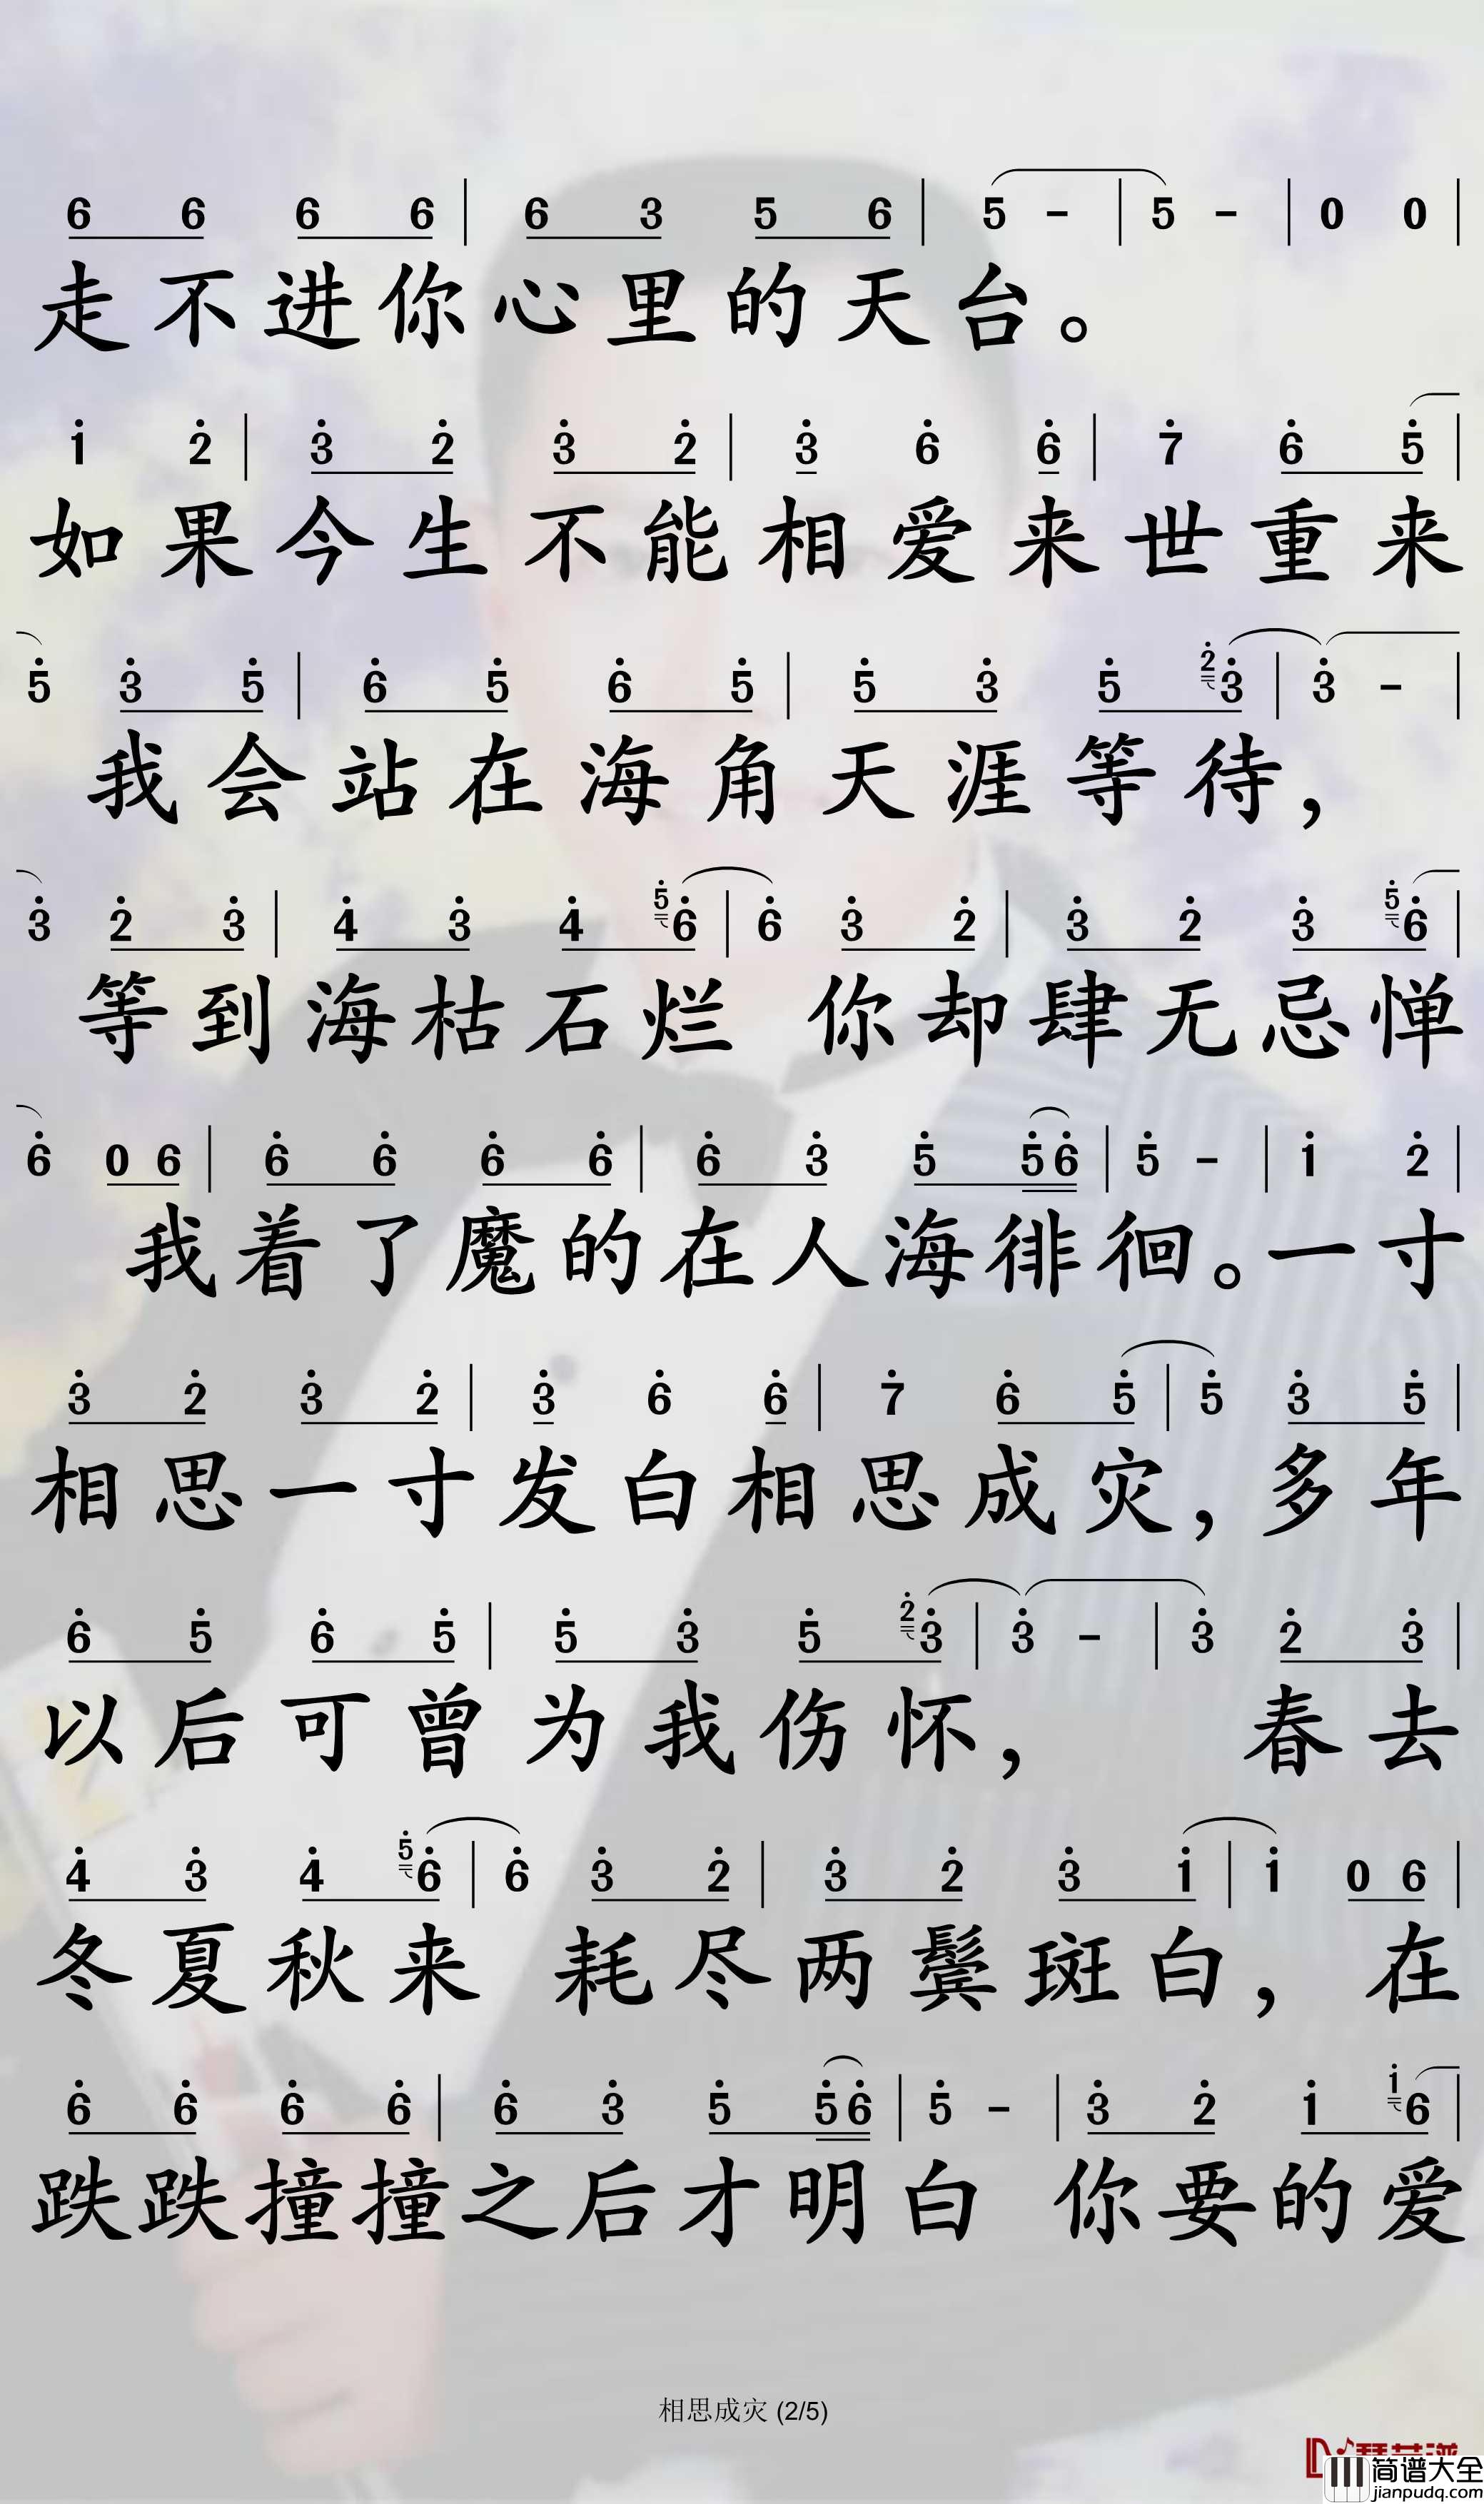 6 6 6 6 | 6 3 5 6 | 5 – | 5 – | 0 0 |
走不进你心里的天台。
1 2 | 3 2 3 2 | 3 6 6 | 7 6 5 |
如果今生不能相爱来世重来
5 3 5 | 6 5 6 5 | 5 3 5 2 3 | 3 – |
我会站在海角天涯等待，
3 2 3 | 4 3 4 5 6 | 6 3 2 | 3 2 3 5 6 |
等到海枯石烂 你却肆无忌惮
6 0 6 | 6 6 6 6 | 6 3 5 5 6 | 5 – | 1 2 |
我着了魔的在人海徘徊。一寸
3 2 3 2 | 3 6 6 | 7 6 5 | 5 3 5 |
相思一寸发白相思成灾，多年
6 5 6 5 | 5 3 5 2 3 | 3 – | 3 2 3 |
以后可曾为我伤怀， 春去
4 3 4 5 6 | 6 3 2 | 3 2 3 1 | 1 0 6 |
冬夏秋来 耗尽两鬓斑白，在
6 6 6 6 | 6 3 5 5 6 | 5 – | 3 2 1 1 6 |
跌跌撞撞之后才明白 你要的爱
相思成灾 (2/5)
简谱大全
jianpudq.com